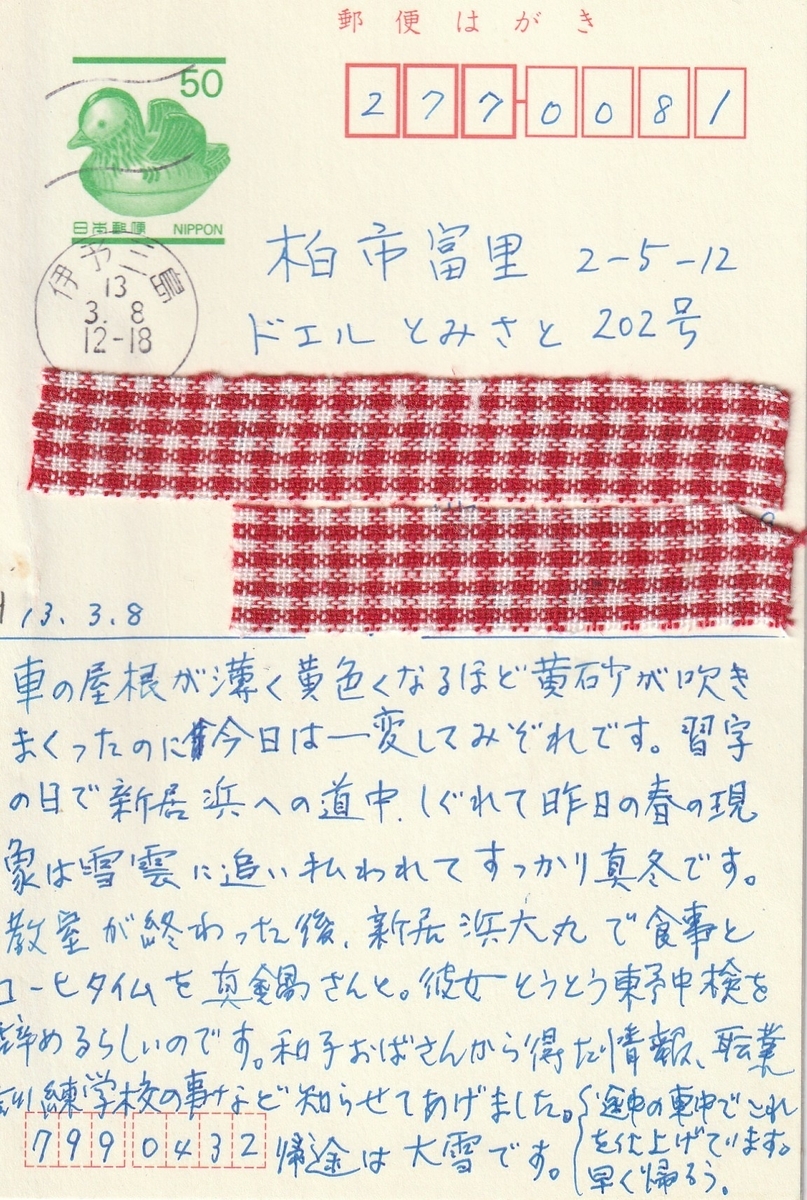 郵便はがき
50
日本郵便 NIPPON
277-0081
伊予三島
13
3. 8
12-18
柏市富里 2-5-12
ドエルとみさと 202号
13.3.8
車の屋根が薄く黄色くなるほど黄砂が吹き
まくったのに今日は一変してみぞれです。習字
の日で新居浜への道中、しぐれて昨日の春の現
象は雪雲に追い払われてすっかり真冬です。
教室が終わった後、新居浜大丸で食事と
コーヒタイムを真鍋さんと。彼女とうとう東予中検を
辞めるらしいのです。和子おばさんから得た情報、職業
訓練学校の事など知らせてあげました。
帰途は大雪です。
途中の車中でこれ
を仕上げています。
早く帰ろう。
7990432